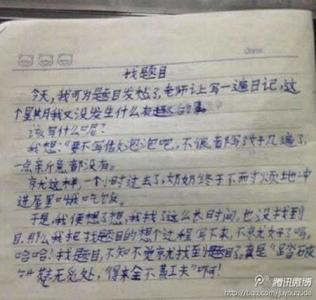 找题目
今天,我可为题目发愁了,老师让写一篇日记,这
个星期我又没发生什么有趣的事
该写什么呢?
我想:"要不写做泡泡吧,不很都写好几遍了,
一点新意都没有。
就这样,一个小时过去了,奶奶终于不耐烦地冲
进屋里喊吃饭。
于是,我便想了想,我找了这么长时间,也没找到题
目,那么我把找题目的想个过程写下来,不就好了吗,
哈哈!找题目,不知不觉就找到题目了,真是"踏石破
铁 楚无觅处,得来全不费工夫"啊!
腾讯微博